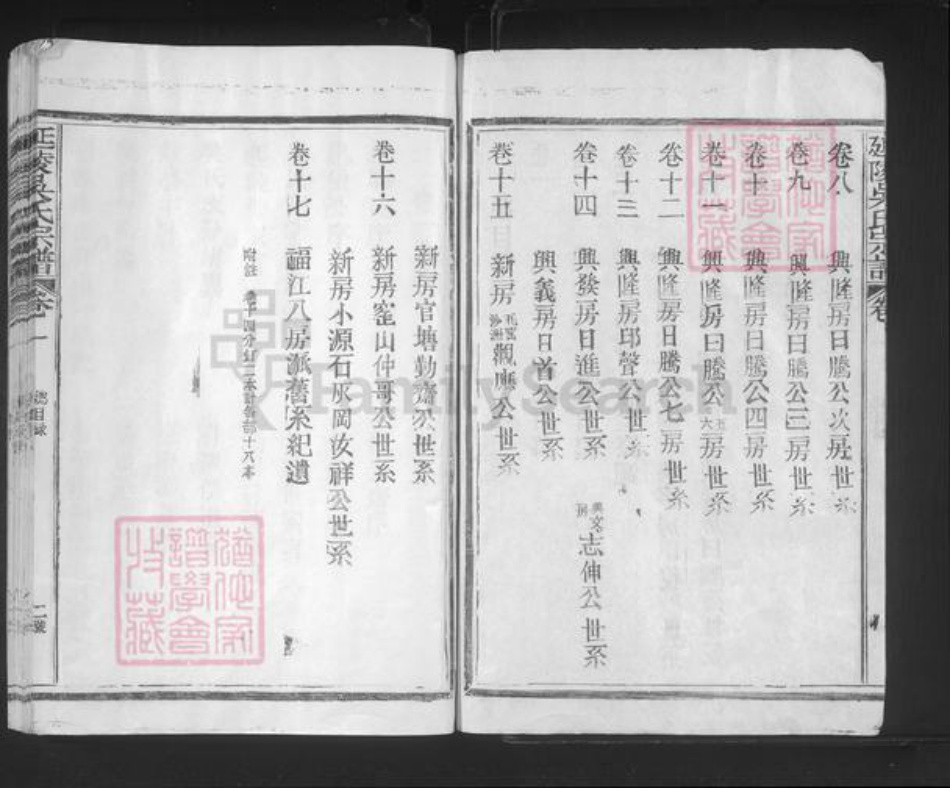 延陵吳氏宗譜
卷八 興隆房日騰公次房世系
卷九 興隆房日騰公三房世系
卷十 興隆房日騰公四房世系
卷十一 興隆房日騰公五六房世系
卷十二 興隆房日騰公七房世系
卷十三 興隆房邱聲公世系
卷十四 興發房日進公世系 興文房志伸公世系
興義房日首公世系
卷十五 新房 觀應公世系
新房官塘勤齋公世系
卷十六 新房窰山仲哥公世系
新房小源石灰岡汝祥公世系
卷十七 福江八房派舊系紀遺
附註 卷十四分訂二本計每部十八本
延陵吳氏宗譜 卷一 總目錄 二
FamilySearch